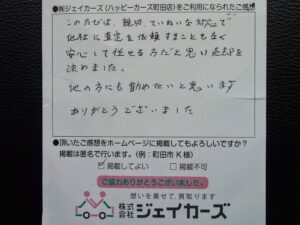 ●㈱ジェイカーズ(ハッピーカーズ町田店)をご利用になられたご感想
このたびは、親切、ていねいな対応で
他社に査定を依頼することもなく
安心して任せる方だと思い売却を
決めました。
他の方にも勧めたいと思います
ありがとうございました
●頂いたご感想をホームページに掲載してもよろしいですか?
掲載は匿名で行います。(例:町田市K様)
☑掲載してよい □掲載不可
ご協力ありがとうございました。
想いを乗せて、買取ります
株式会社 ジェイカーズ